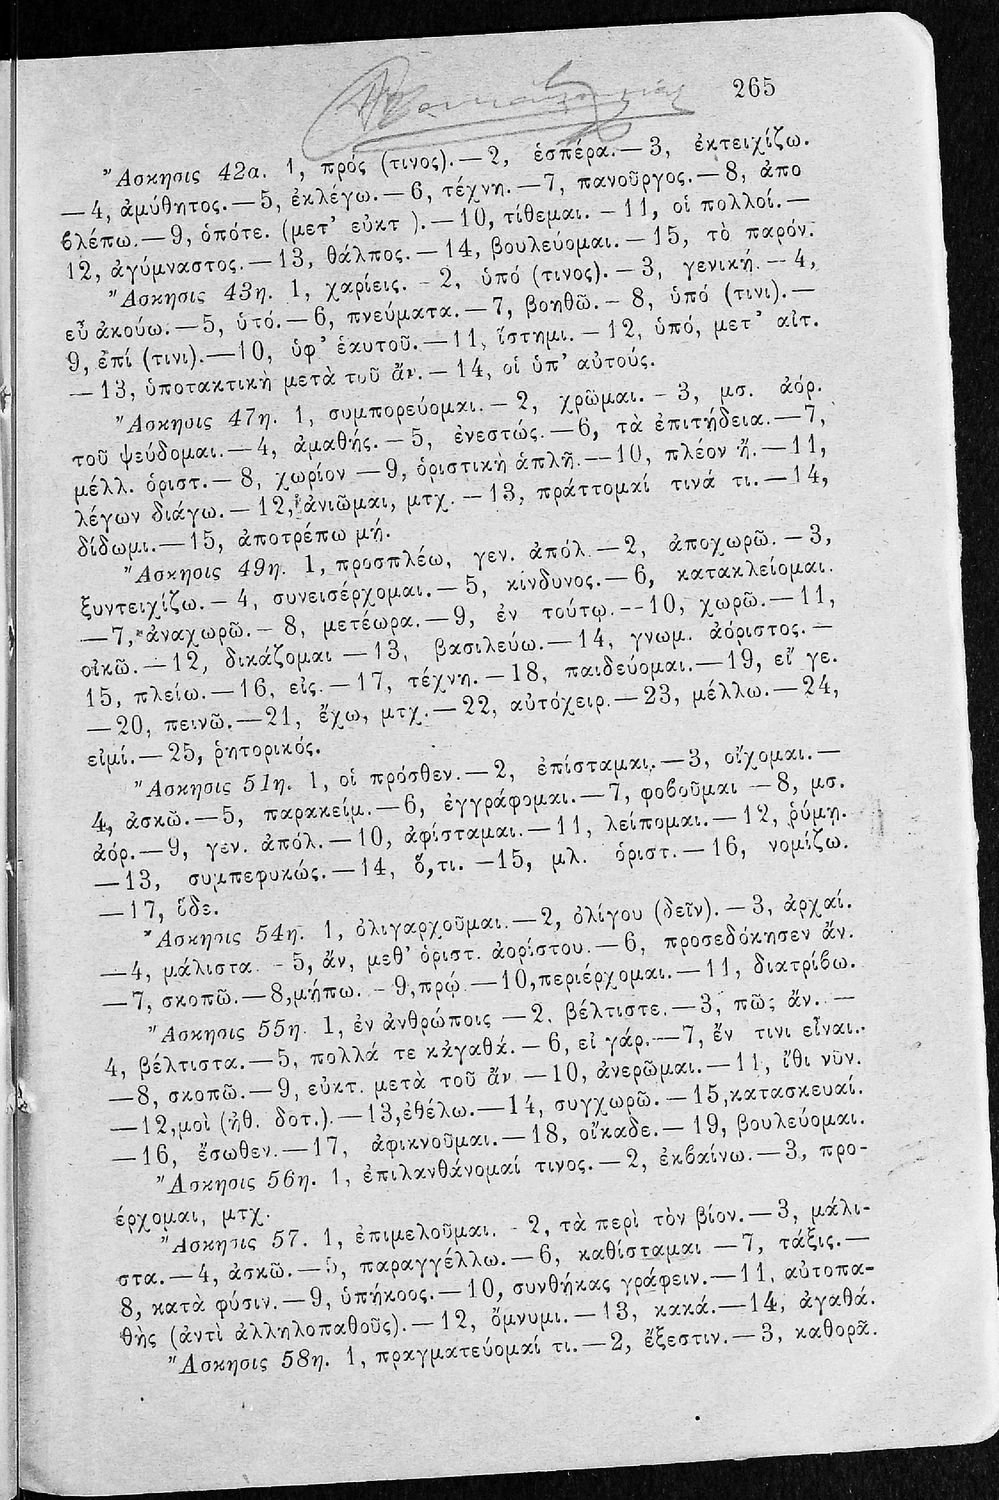 265
Ἄσκησις 42α. 1, πρός (τινος).—2, ἑσπέρα.—3, ἐκτειχίζω.
—4, ἀμύθητος.—5, ἐκλέγω.—6, τέχνη.—7, πανοῦργος.—8, ἀπο
βλέπω.—9, ὁπότε. (μετ' εὐκτ ).—10, τίθεμαι. –11, οἱ πολλοί.—
12, ἀγύμναστος.—13, θάλπος.—14, βουλεύομαι.—15, τὸ παρόν.
Ἄσκησις 43η. 1, χαρίεις. - 2, ὑπό (τινος).—3, γενική.—4,
εὖ ἀκούω.—5, ὑτό.—6, πνεύματα.—7, βοηθῶ.– 8, ὑπό (τινι).—
9, ἐπί (τινι).—10, ὑφ' ἑαυτοῦ.—11, ἵστημι. —12, ὑπό, μετ' αἰτ.
—13, ὑποτακτικὴ μετὰ τοῦ ἄν.—14, οἱ ὑπ' αὐτούς.
Ἄσκησις 47η. 1, συμπορεύομαι.—2, χρῶμαι. – 3, μσ. ἀόρ.
τοῦ ψεύδομαι.—4, ἀμαθής.—5, ἐνεστώς.—6, τὰ ἐπιτήδεια.—7,
μέλλ. ὁριστ.—8, χωρίον —9, ὁριστικὴ ἁπλῆ.—10, πλέον ἤ.—11,
λέγων διάγω.—12, ἀνιῶμαι, μτχ.—13, πράττομαί τινά τι.—14,
δίδωμι.—15, ἀποτρέπω μή.
Ἄσκησις 49η. 1, προσπλέω, γεν. ἀπόλ.—2, ἀποχωρῶ.—3,
ξυντειχίζω.—4, συνεισέρχομαι.—5, κίνδυνος.—6, κατακλείομαι.
—7, ἀναχωρῶ.—8, μετέωρα.—9, ἐν τούτῳ.--10, χωρῶ.—11,
οἰκῶ.—12, δικάζομαι —13, βασιλεύω.—14, γνωμ. ἀόριστος.—
15, πλείω.—16, εἰς.—17, τέχνη.—18, παιδεύομαι.—19, εἴ γε.
—20, πεινῶ.—21, ἔχω, μτχ.—22, αὐτόχειρ.—23, μέλλω.—24,
εἰμί.—25, ῥητορικός.
Ἄσκησις 51η. 1, οἱ πρόσθεν.—2, ἐπίσταμαι.—3, οἴχομαι.—
4, ἀσκῶ.—5, παρακείμ.—6, ἐγγράφομαι.—7, φοβοῦμαι —8, μσ.
ἀόρ.—9, γεν. ἀπόλ.—10, ἀφίσταμαι.—11, λείπομαι.—12, ῥύμη.
—13, συμπεφυκώς.—14, ὅ,τι. –15, μλ. ὁριστ.—16, νομίζω.
—17, ὅδε.
Ἄσκησις 54η. 1, ὀλιγαρχοῦμαι.—2, ὀλίγου (δεῖν).—3, ἀρχαί.
—4, μάλιστα. - 5, ἄν, μεθ' ὁριστ. ἀορίστου.—6, προσεδόκησεν ἄν.
—7, σκοπῶ.—8,μήπω. - 9,πρῴ.—10,περιέρχομαι.—11, διατρίβω.
Ἄσκησις 55η. 1, ἐν ἀνθρώποις —2, βέλτιστε.—3, πῶς ἄν. —
4, βέλτιστα.—5, πολλά τε κἀγαθά.—6, εἰ γάρ.—7, ἔν τινι εἶναι.
—8, σκοπῶ.—9, εὐκτ. μετὰ τοῦ ἄν —10, ἀνερῶμαι.—11, ἴθι νῦν.
—12,μοὶ (ἠθ. δοτ.).—13,ἐθέλω.—14, συγχωρῶ.—15,κατασκευαί.
—16, ἔσωθεν.—17, ἀφικνοῦμαι.—18, οἴκαδε.—19, βουλεύομαι.
Ἄσκησις 56η. 1, ἐπιλανθάνομαί τινος.—2, ἐκβαίνω.—3, προ-
έρχομαι, μτχ.
Ἄσκησις 57. 1, ἐπιμελοῦμαι. - 2, τὰ περὶ τὸν βίον.—3, μάλι-
στα.—4, ἀσκῶ.—5, παραγγέλλω.—6, καθίσταμαι —7, τάξις.—
8, κατὰ φύσιν.—9, ὑπήκοος.—10, συνθήκας γράφειν.—11, αὐτοπα-
θὴς (ἀντὶ ἀλληλοπαθοῦς).—12, ὄμνυμι.—13, κακά.—14, ἀγαθά.
Ἄσκησις 58η. 1, πραγματεύομαί τι.—2, ἔξεστιν.—3, καθορᾶ.